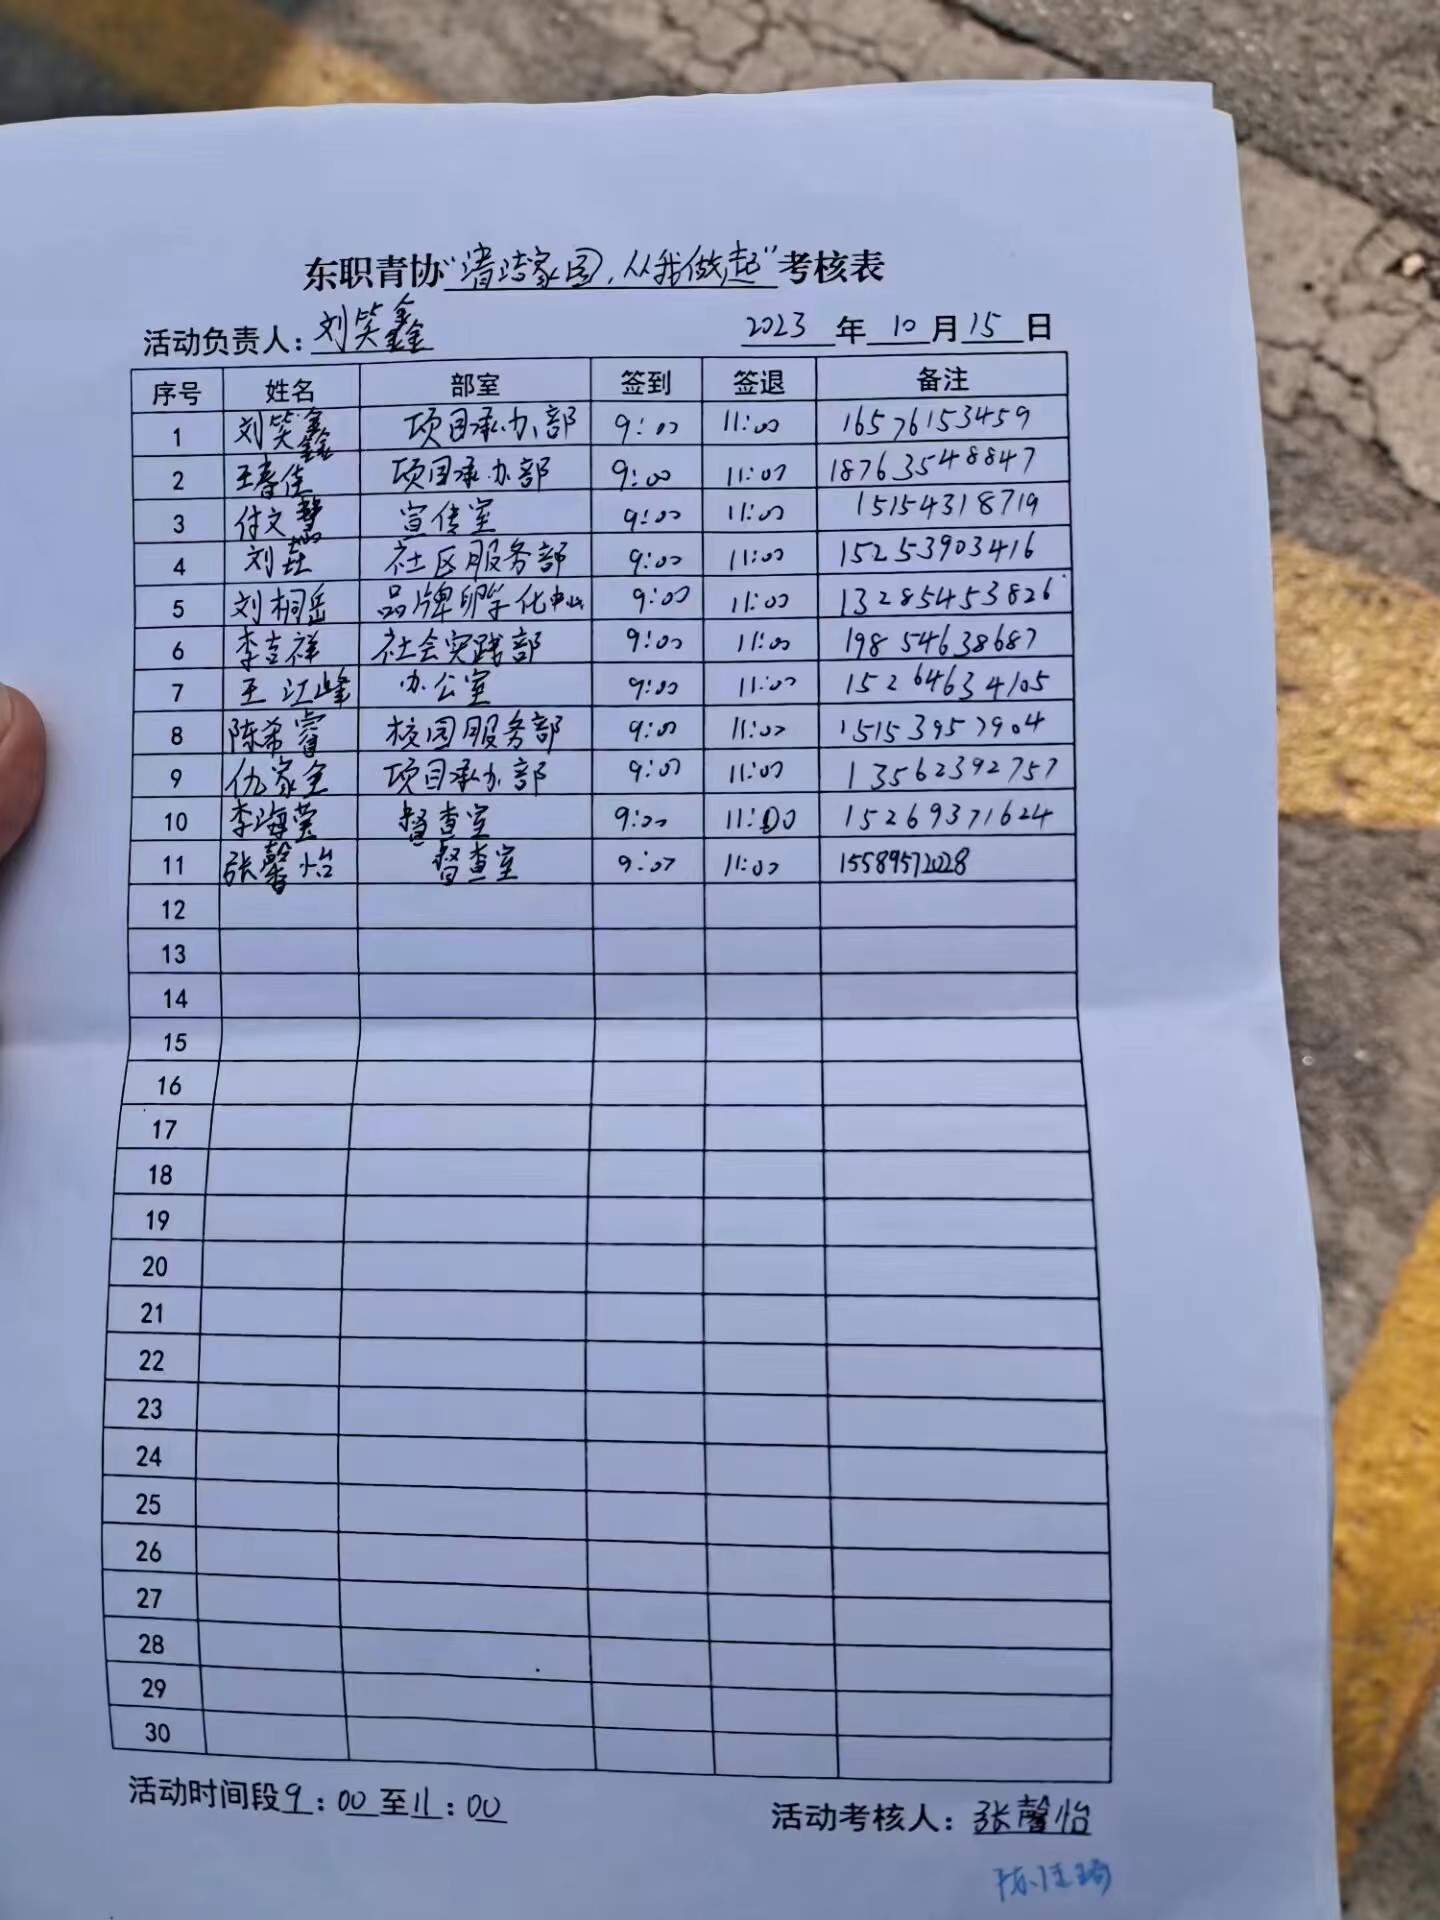 东职青协“清洁家园,从我做起”考核表
活动负责人:刘笑鑫 2023年10月15日
序号 姓名 部室 签到 签退 备注
1 刘笑鑫 项目承办部 9:00 11:00 16576153459
2 王春佳 项目承办部 9:00 11:00 18763548847
3 付文慧 宣传室 9:00 11:00 15154318719
4 刘垚 社区服务部 9:00 11:00 15253903416
5 刘桐岳 品牌孵化中心 9:00 11:00 13285453826
6 李吉祥 社会实践部 9:00 11:00 19854638687
7 王江峰 办公室 9:00 11:00 15264634105
8 陈希睿 校园服务部 9:00 11:00 15153957904
9 仇家全 项目承办部 9:00 11:00 13562392757
10 李海莹 督查室 9:00 11:00 15269371624
11 张馨怡 督查室 9:00 11:00 15589572028
12
13
14
15
16
17
18
19
20
21
22
23
24
25
26
27
28
29
30
活动时间段9:00至11:00 活动考核人:张馨怡